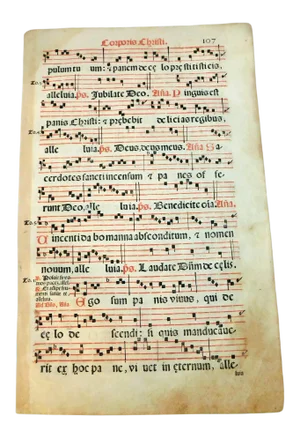 Corporis Christi. 107
pulum tu um: ⁊ panem de cę lo pręstitisti eis,
alleluia. ps. Jubilate Deo. Aña. P inguis est
panis Christi: ⁊ prębebit delicias regibus,
alle luia. ps. Deus, deus meus. Aña. Sa
cerdotes sancti incensum ⁊ pa nes of fe,
runt Deo, alle luia. ps. Benedicite oĩa. Aña.
Vincenti dabo manna absconditum, ⁊ nomen
novum, alle luia. ps. Laudate Dñm de cęlis.
E go sum pa nis vivus, qui de
cę lo de scendi: si quis manducave
rit ex hoc pa ne, vi vet in ęternum, alle,